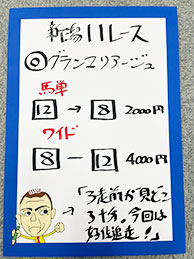 新潟11レース
◎グランマリアージュ
馬単
12→8 2000円
ワイド
8－12 4000円
→「3走前が見どこ
ろ十分。今回は
好位追走!」